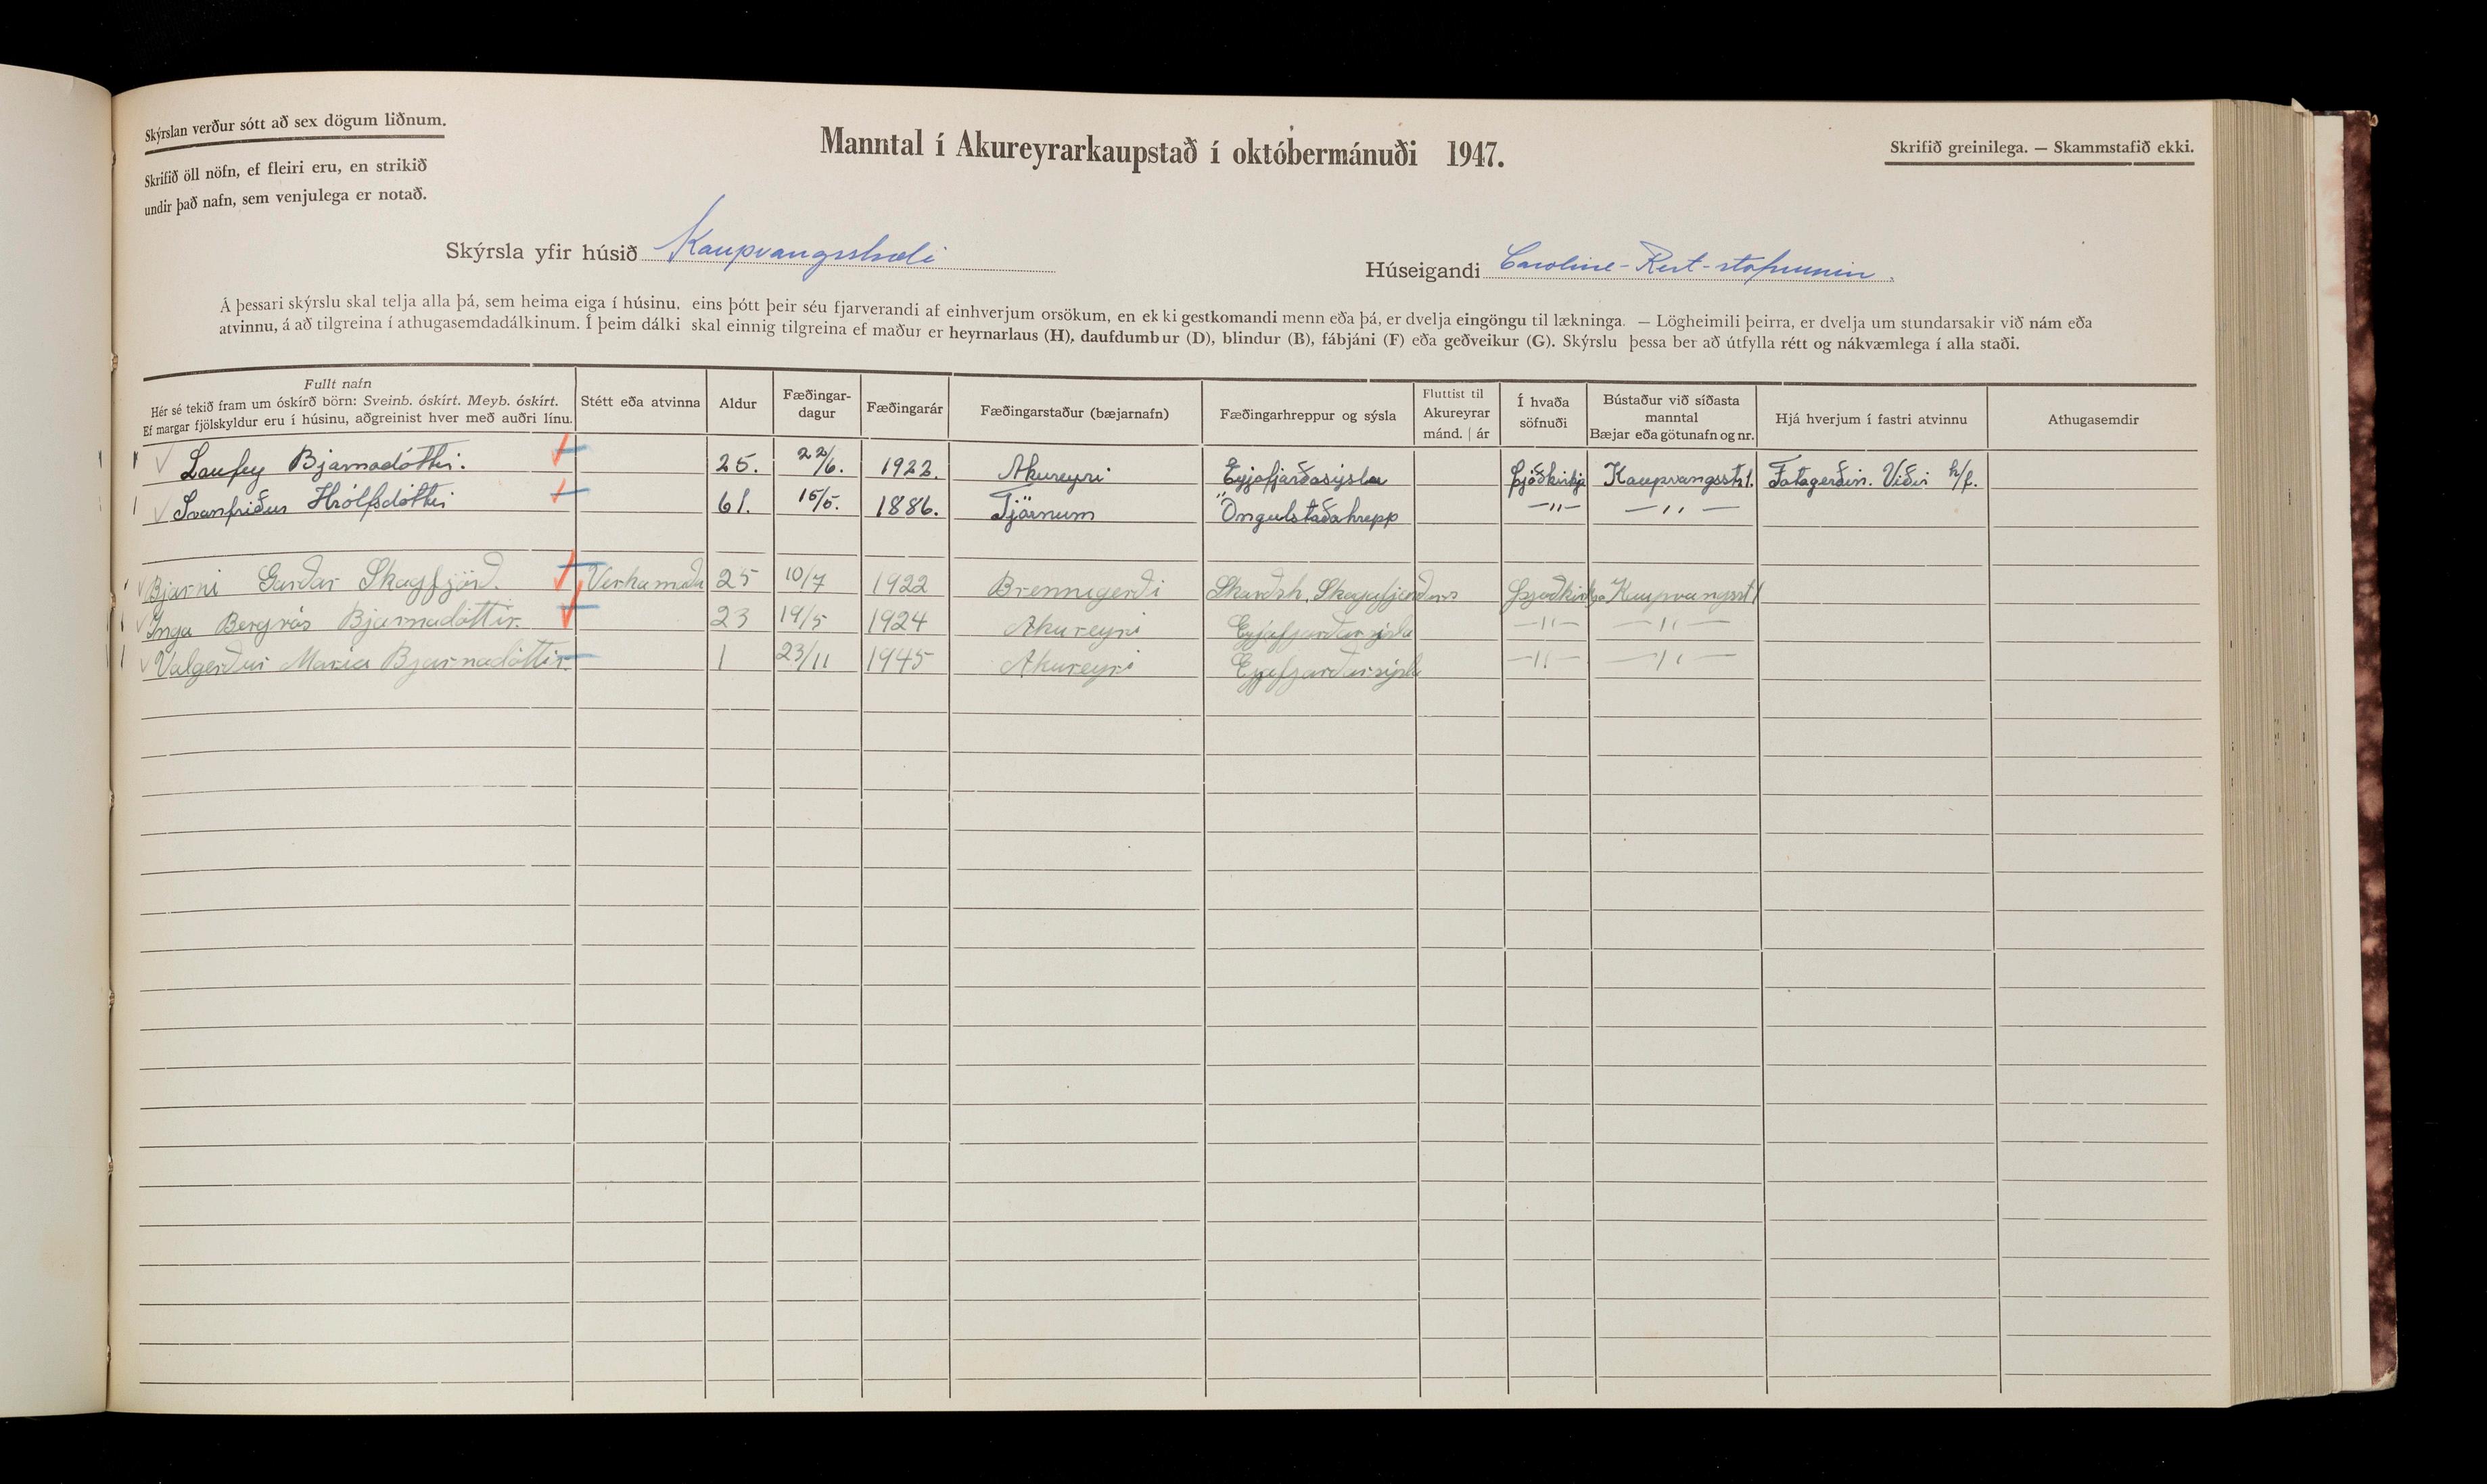 Skýrslan verður sótt að sex dögum liðnum.
Skrifið öll nöfn, ef fleiri eru, en strikið
undir það nafn, sem venjulega er notað.
Manntal í Akureyrarkaupstað í októbermánuði 1947.
Skrifið greinilega. — Skammstafið ekki.
Skýrsla yfir húsið Kaupvangsstræti
Húseigandi Caroline-Rest-stofnunin.
Á þessari skýrslu skal telja alla þá, sem heima eiga í húsinu, eins þótt þeir séu fjarverandi af einhverjum orsökum, en ekki gestkomandi menn eða þá, er dvelja eingöngu til lækninga. — Lögheimili þeirra, er dvelja um stundarsakir við nám eða
atvinnu, á að tilgreina í athugasemdadálkinum. Í þeim dálki skal einnig tilgreina ef maður er heyrnarlaus (H), daufdumbur (D), blindur (B), fábjáni (F) eða geðveikur (G). Skýrslu þessa ber að útfylla rétt og nákvæmlega í alla staði.
Fullt nafn
Hér sé tekið fram um óskírð börn: Sveinb. óskírt. Meyb. óskírt.
Ef margar fjölskyldur eru í húsinu, aðgreinist hver með auðri línu.
Stétt eða atvinna
Aldur
Fæðingar-
dagur
Fæðingarár
Fæðingarstaður (bæjarnafn)
Fæðingarhreppur og sýsla
Fluttist til
Akureyrar
mánd. | ár
Í hvaða
söfnuði
Bústaður við síðasta
manntal
Bæjar eða götunafn og nr.
Hjá hverjum í fastri atvinnu
Athugasemdir
Laufey Bjarnadóttir. 25. 22/6. 1922. Akureyri Eyjafjarðasýsla Þjóðkirkja Kaupvangsstr 1. Fatagerðin. Víðir h/f.
Svanfríður Hrólfsdóttir 61. 15/5. 1886. Tjörnum Öngulstaðahrepp —"— —"—
Bjarni Garðar Skagfjörð. Verkamaðu 25 10/7 1922 Brennigerði Skarðsh. Skagafjarðars Þjóðkirkja Kaupvangsst 1
Inga Bergrós Bjarnadóttir. 23 19/5 1924 Akureyri Eyjafjarðarsýsla —"— —"—
Valgerður María Bjarnadóttir. 1 23/11 1945 Akureyri Eyjafjarðarsýsla —"— —"—